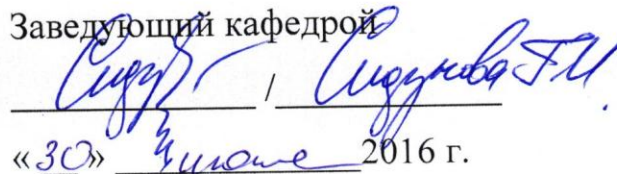 Заведующий кафедрой
/ Сидунова Г.И.
«30» июня 2016 г.